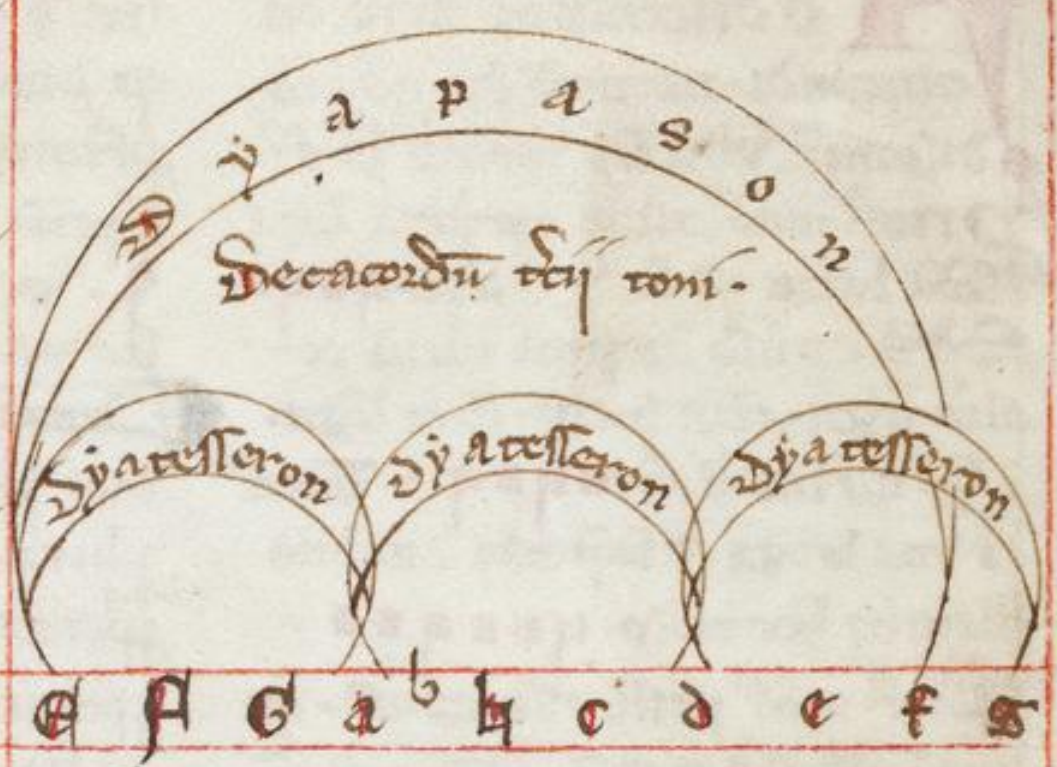 Dyapason
Decacordū tc̄ii toni.
dyatesseron dyatesseron dyatesseron
E F G a b ♮ c d e f g